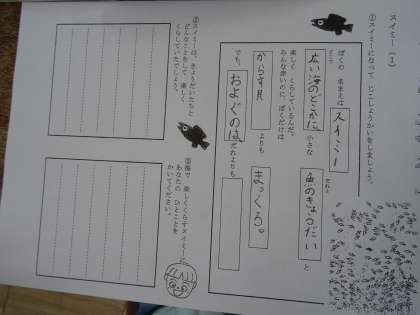 スイミー (1)
①スイミーになって じこしょうかいをしましょう。
ぼくの 名まえは スイミー
広い海のどこかに、小さな 魚のきょうだい と
楽しく くらしているんだ。
みんな赤いのに、ぼくだけは
からす貝 よりも まっくろ。
でも、およぐのは、だれよりも
②スイミーは、きょうだいたちと
どんなことをして 楽しく
くらしていたでしょう。
③海で 楽しくくらすスイミーに
あなたの ひとことを
かいてください。